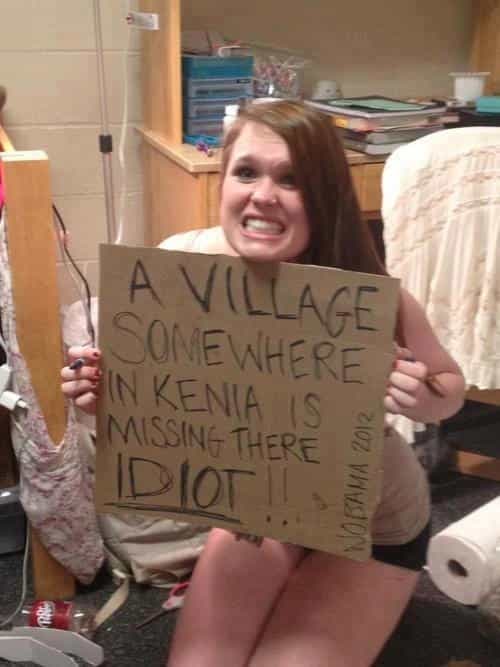 A VILLAGE
SOMEWHERE
IN KENIA IS
MISSING THERE
IDIOT!!
NOBAMA 2012